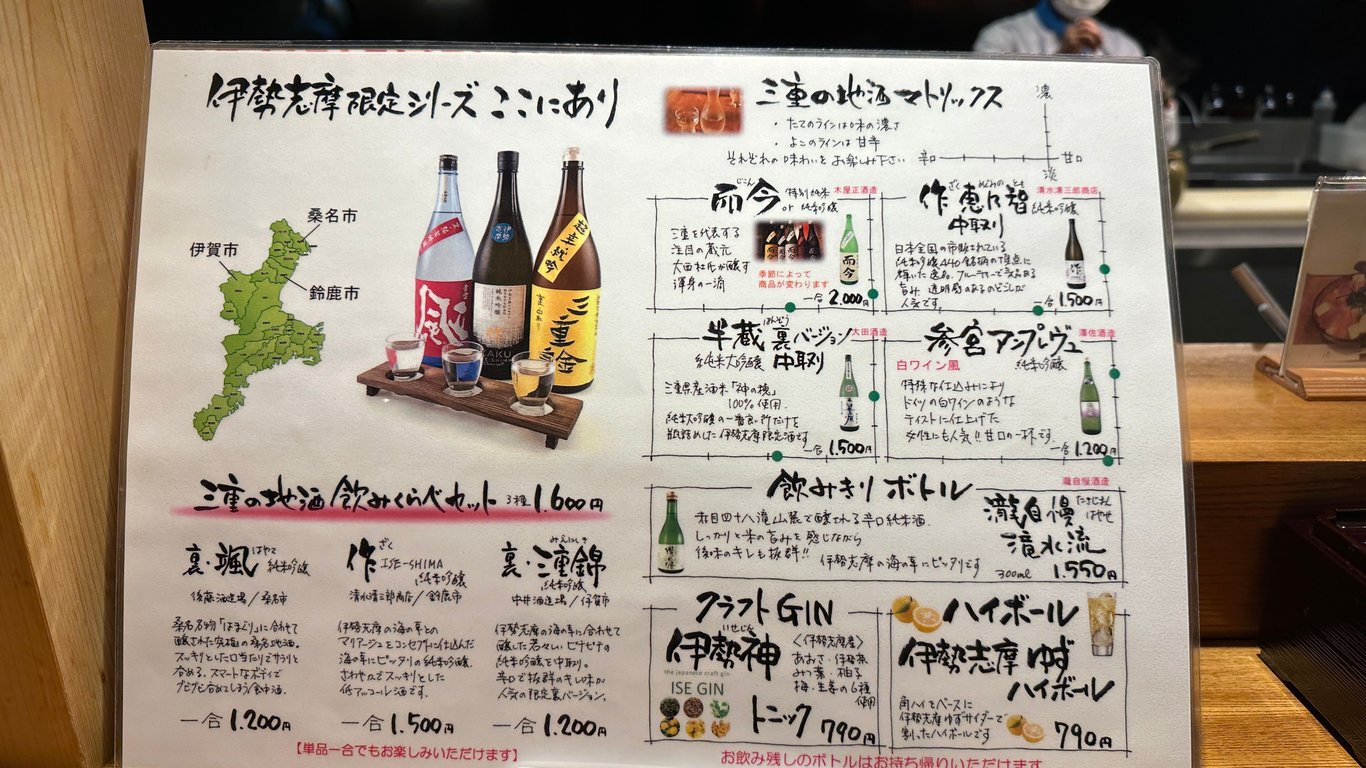 伊勢志摩限定シリーズ ここにあり
桑名市
伊賀市
鈴鹿市
三重の地酒 飲みくらべセット 3種 1.600円
裏・颯 はやて
純米吟醸
後藤酒造場/桑名市
桑名名物「はまぐり」に合わせて
醸された究極の桑名地酒。
スッキリとした口当たりでサラリと
呑める。スマートなボディで
グビグビ呑めてしまう食中酒。
一合 1.200円
作 ざく
ISE-SHIMA
純米吟醸
清水清三郎商店/鈴鹿市
伊勢志摩の海の幸との
マリアージュをコンセプトに仕込んだ
海の幸にピッタリの純米吟醸。
さわやかでスッキリとした
低アルコール酒です。
一合 1.500円
裏・三重錦 みえにしき
純米吟醸
中井酒造場/伊賀市
伊勢志摩の海の幸に合わせて
醸した若々しいピチピチの
純米吟醸を中取り。
辛口で抜群のキレ味が
人気の限定裏バージョン。
一合 1.200円
【単品一合でもお楽しみいただけます】
三重の地酒マトリックス
・たてのラインは味の濃さ
・よこのラインは甘辛
それぞれの味わいをお楽しみ下さい
濃
辛口
甘口
淡
而今 じこん
特別純米
or 純米吟醸
木屋正酒造
三重を代表する
注目の蔵元
大西杜氏が醸す
渾身の一滴
季節によって
商品が変わります
一合 2.000円
作 恵乃智 ざく めぐみのとも
清水清三郎商店
純米吟醸
中取り
日本全国の市販されている
純米吟醸440銘柄の頂点に
輝いた逸品。フルーティーで気品ある
旨み 透明感のあるのどごしが
人気です
一合 1.500円
半蔵 裏バージョン はんぞう
大田酒造
純米大吟醸 中取り
三重県産酒米「神の穂」
100%使用.
純米大吟醸の一番良い所だけを
瓶詰めした伊勢志摩限定酒です
一合 1.500円
参宮アンプレヴュ
澤佐酒造
白ワイン風
純米吟醸
特殊な仕込みにより
ドイツの白ワインのような
テイストに仕上げた
女性にも人気!!甘口の一杯です.
一合 1.200円
飲みきり ボトル
瀧自慢酒造
瀧自慢 たきじまん
滝水流 はやせ
赤目四十八滝山麓で醸される辛口純米酒.
しっかりと米の旨みを感じながら
後味のキレも抜群!!
伊勢志摩の海の幸にピッタリです
300ml 1.550円
クラフト GIN
伊勢神 いせじん
the japanese craft gin
ISE GIN
〈伊勢志摩産〉
あおさ・伊勢茶
みつ葉・柚子
梅・生姜の6種
使用
トニック 790円
ハイボール
伊勢志摩 ゆず
ハイボール
角ハイをベースに
伊勢志摩ゆずサイダーで
割ったハイボールです
790円
お飲み残しのボトルはお持ち帰りいただけます